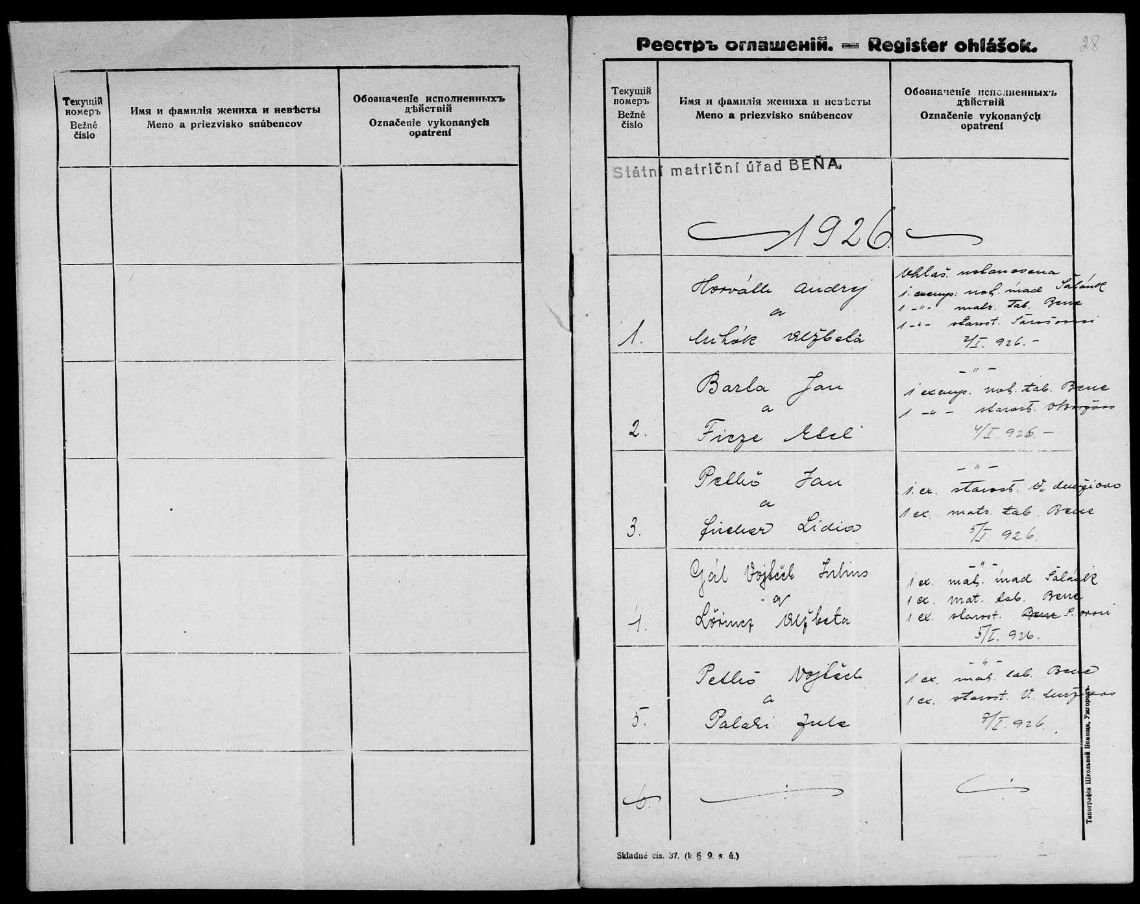 Текущій номеръ
Bežné číslo
Имя и фамилія жениха и невѣсты
Meno a priezvisko snúbencov
Обозначеніе исполненныхъ дѣйствій
Označenie vykonaných opatrení
Реестръ оглашеній. — Register ohlášok.
28
Текущій номеръ
Bežné číslo
Имя и фамилія жениха и невѣсты
Meno a priezvisko snúbencov
Обозначеніе исполненныхъ дѣйствій
Označenie vykonaných opatrení
Státní matriční úřad BEŇA.
1926
Horváth Andrej
a
1.
Alžbeta
1 exemp. úrad Šalánk
1 -"- matr. tab. Bene
1 -"- starost.
2/I. 926. -
Barta Jan
a
2. Ficze Etel
-"-
1 exemp. tab. Bene
1 -"- starost.
4/I. 926. -
Pethő Jan
a
3. Lidia
-"-
1 ex. starost. V.
1 ex. matr. tab. Bene
5/I. 926.
Gál Vojtěch Julius
a
4. Lőrincz Alžbeta
-"-
1 ex. mat. úrad Šalánk
1 ex. mat. tab. Bene
1 ex. starost. Bene
5/I. 926.
Pethő Vojtěch
a
5.
-"-
1 ex. mat. tab. Bene
1 ex. starost. V.
8/I. 926.
6.
Типографія Школьной Помощи, Ужгородъ.
Skladné čis. 37. (k § 9. s. ú.)